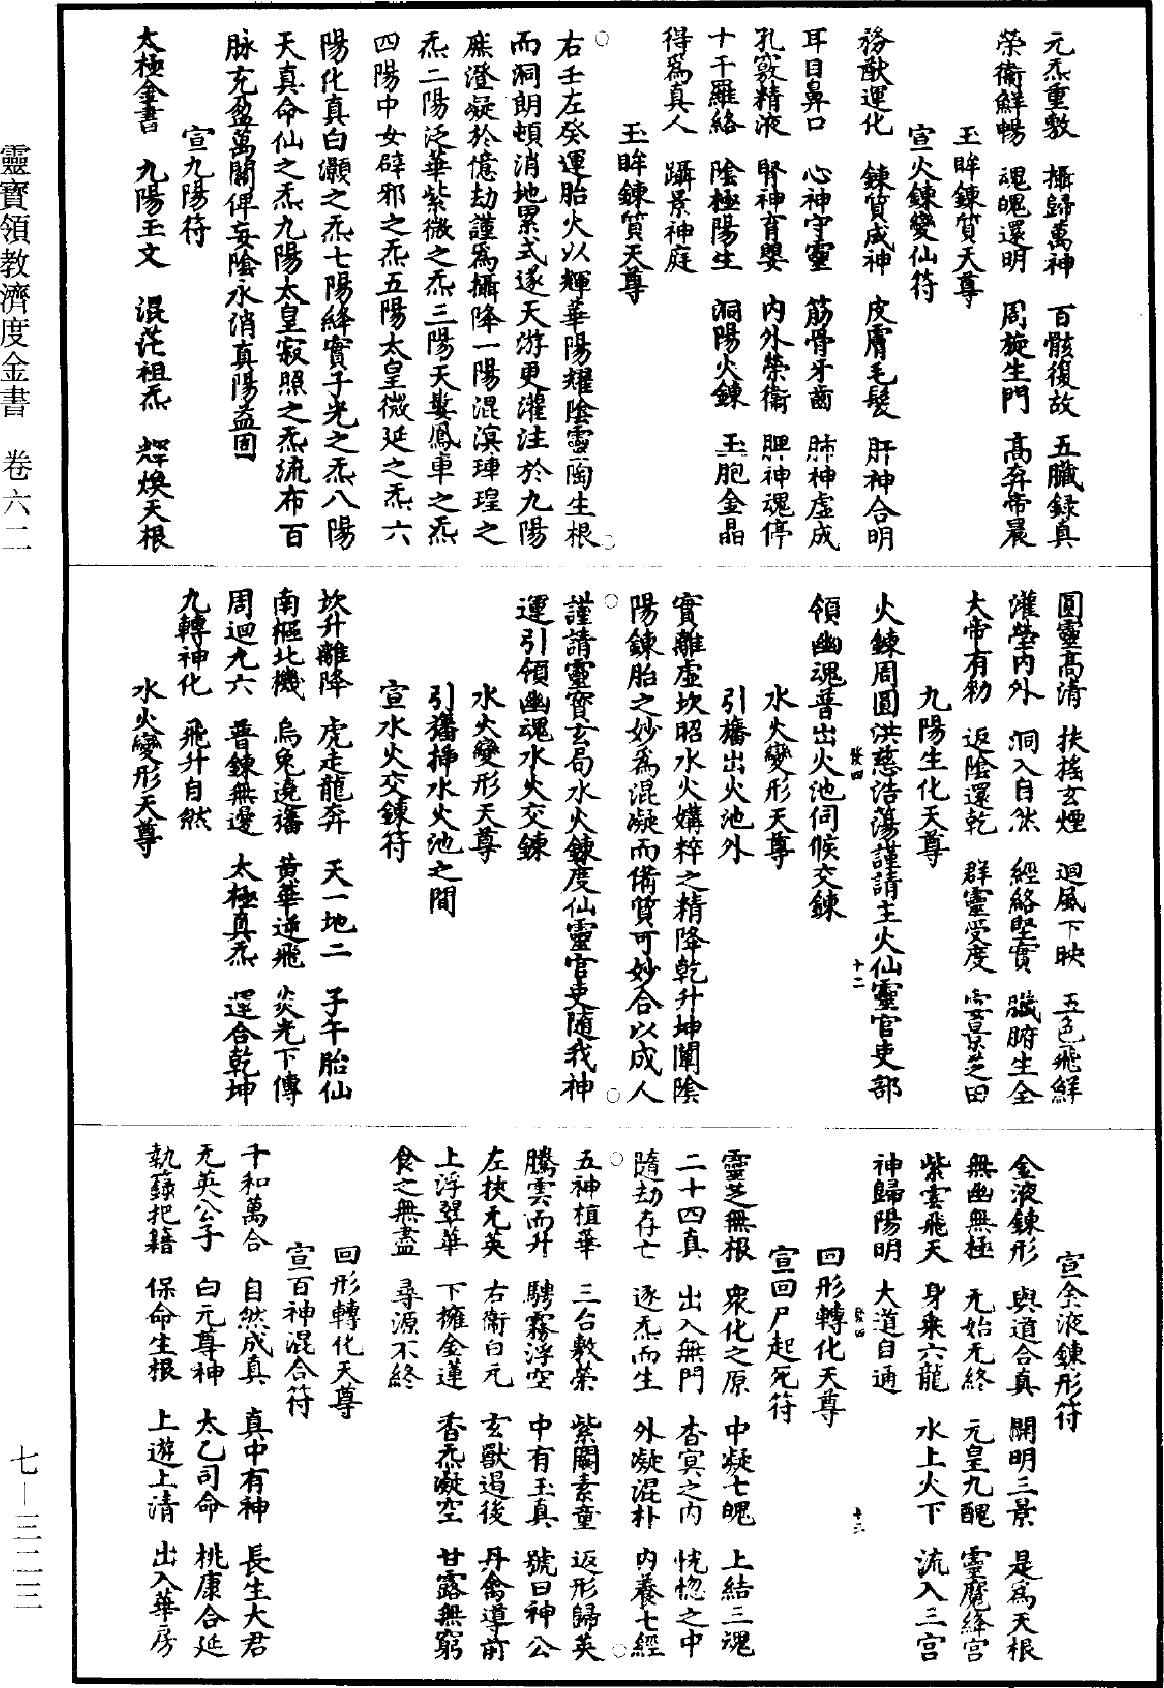 元炁重敷　攝歸萬神　百骸復故　五臟録真
榮衛鮮暢　魂魄還明　周旋生門　高奔帝晨
玉眸鍊質天尊
宣火鍊變仙符
務猷運化　鍊質成神　皮膚毛髮　肝神合明
耳目鼻口　心神守靈　筋骨牙齒　肺神虛成
孔竅精液　腎神育嬰　內外榮衛　脾神魂停
十干羅絡　陰極陽生　洞陽火鍊　玉胞金晶
得爲真人　躡景神庭
玉眸鍊質天尊
右壬左癸運胎火以輝華陽耀陰靈陶生根
而洞朗頓消地累式逐天游更灌注於九陽
庶澄凝於億劫謹爲攝降一陽混溟琿瑝之
炁二陽泛華紫微之炁三陽天鬘鳳車之炁
四陽中女辟邪之炁五陽太皇微延之炁六
陽化真白灝之炁七陽絳實子光之炁八陽
天真命仙之炁九陽太皇寂照之炁流布百
脉充盈萬關俾妄陰永消真陽益固
宣九陽符
太極金書　九陽玉文　混茫祖炁　輝煥天根
圓靈高清　扶搖玄煙　迴風下映　五色飛鮮
灌瑩內外　洞入自然　經絡堅實　臟腑生全
大帝有勑　返陰還乾　群靈受度　雲景芝田
九陽生化天尊
火鍊周圓洪慈浩蕩謹請主火仙靈官吏部
領幽魂普出火池伺候交鍊
水火變形天尊
引旛出火池外
實離虛坎昭水火媾粹之精降乾升坤闡陰
陽鍊胎之妙爲混凝而備質可妙合以成人
謹請靈寶玄局水火鍊度仙靈官吏隨我神
運引領幽魂水火交鍊
水火變形天尊
引旛挿水火池之間
宣水火交鍊符
坎升離降　虎走龍奔　天一地二　子午胎仙
南樞北機　烏兔遶旛　黄華逆飛　炎光下傳
周迴九六　普鍊無邊　太極真炁　運合乾坤
九轉神化　飛升自然
水火變形天尊
宣金液鍊形符
金液鍊形　與道合真　開明三景　是爲天根
無幽無極　无始无終　元皇九醜　靈魔絳宮
紫雲飛天　身乘六龍　水上火下　流入三宮
神歸陽明　大道自通
回形轉化天尊
宣回尸起死符
靈芝無根　衆化之原　中凝七魄　上結三魂
二十四真　出入無門　杳冥之內　恍惚之中
隨劫存亡　逐炁而生　外凝混朴　內養七經
五神植華　三台敷榮　紫闕素童　返形歸英
騰雲而升　騁霧浮空　中有玉真　號曰神公
左挾无英　右衛白元　玄獸遏後　丹禽導前
上浮翠華　下擁金蓮　香炁凝空　甘露無窮
食之無盡　尋源不終
回形轉化天尊
宣百神混合符
千和萬合　自然成真　真中有神　長生大君
无英公子　白元尊神　太乙司命　桃康合延
執籙把籍　保命生根　上遊上清　出入華房
靈寶領教濟度金書　卷六二
七—三二三